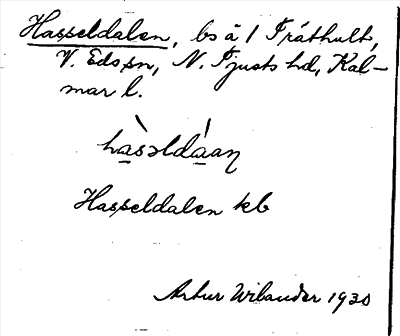 Hasseldalen, bs å 1 Fråthult,
V. Eds sn, N. Tjusts hd, Kal-
mar l.
hàsəldáan
Hasseldalen kb
Artur Wilander 1930